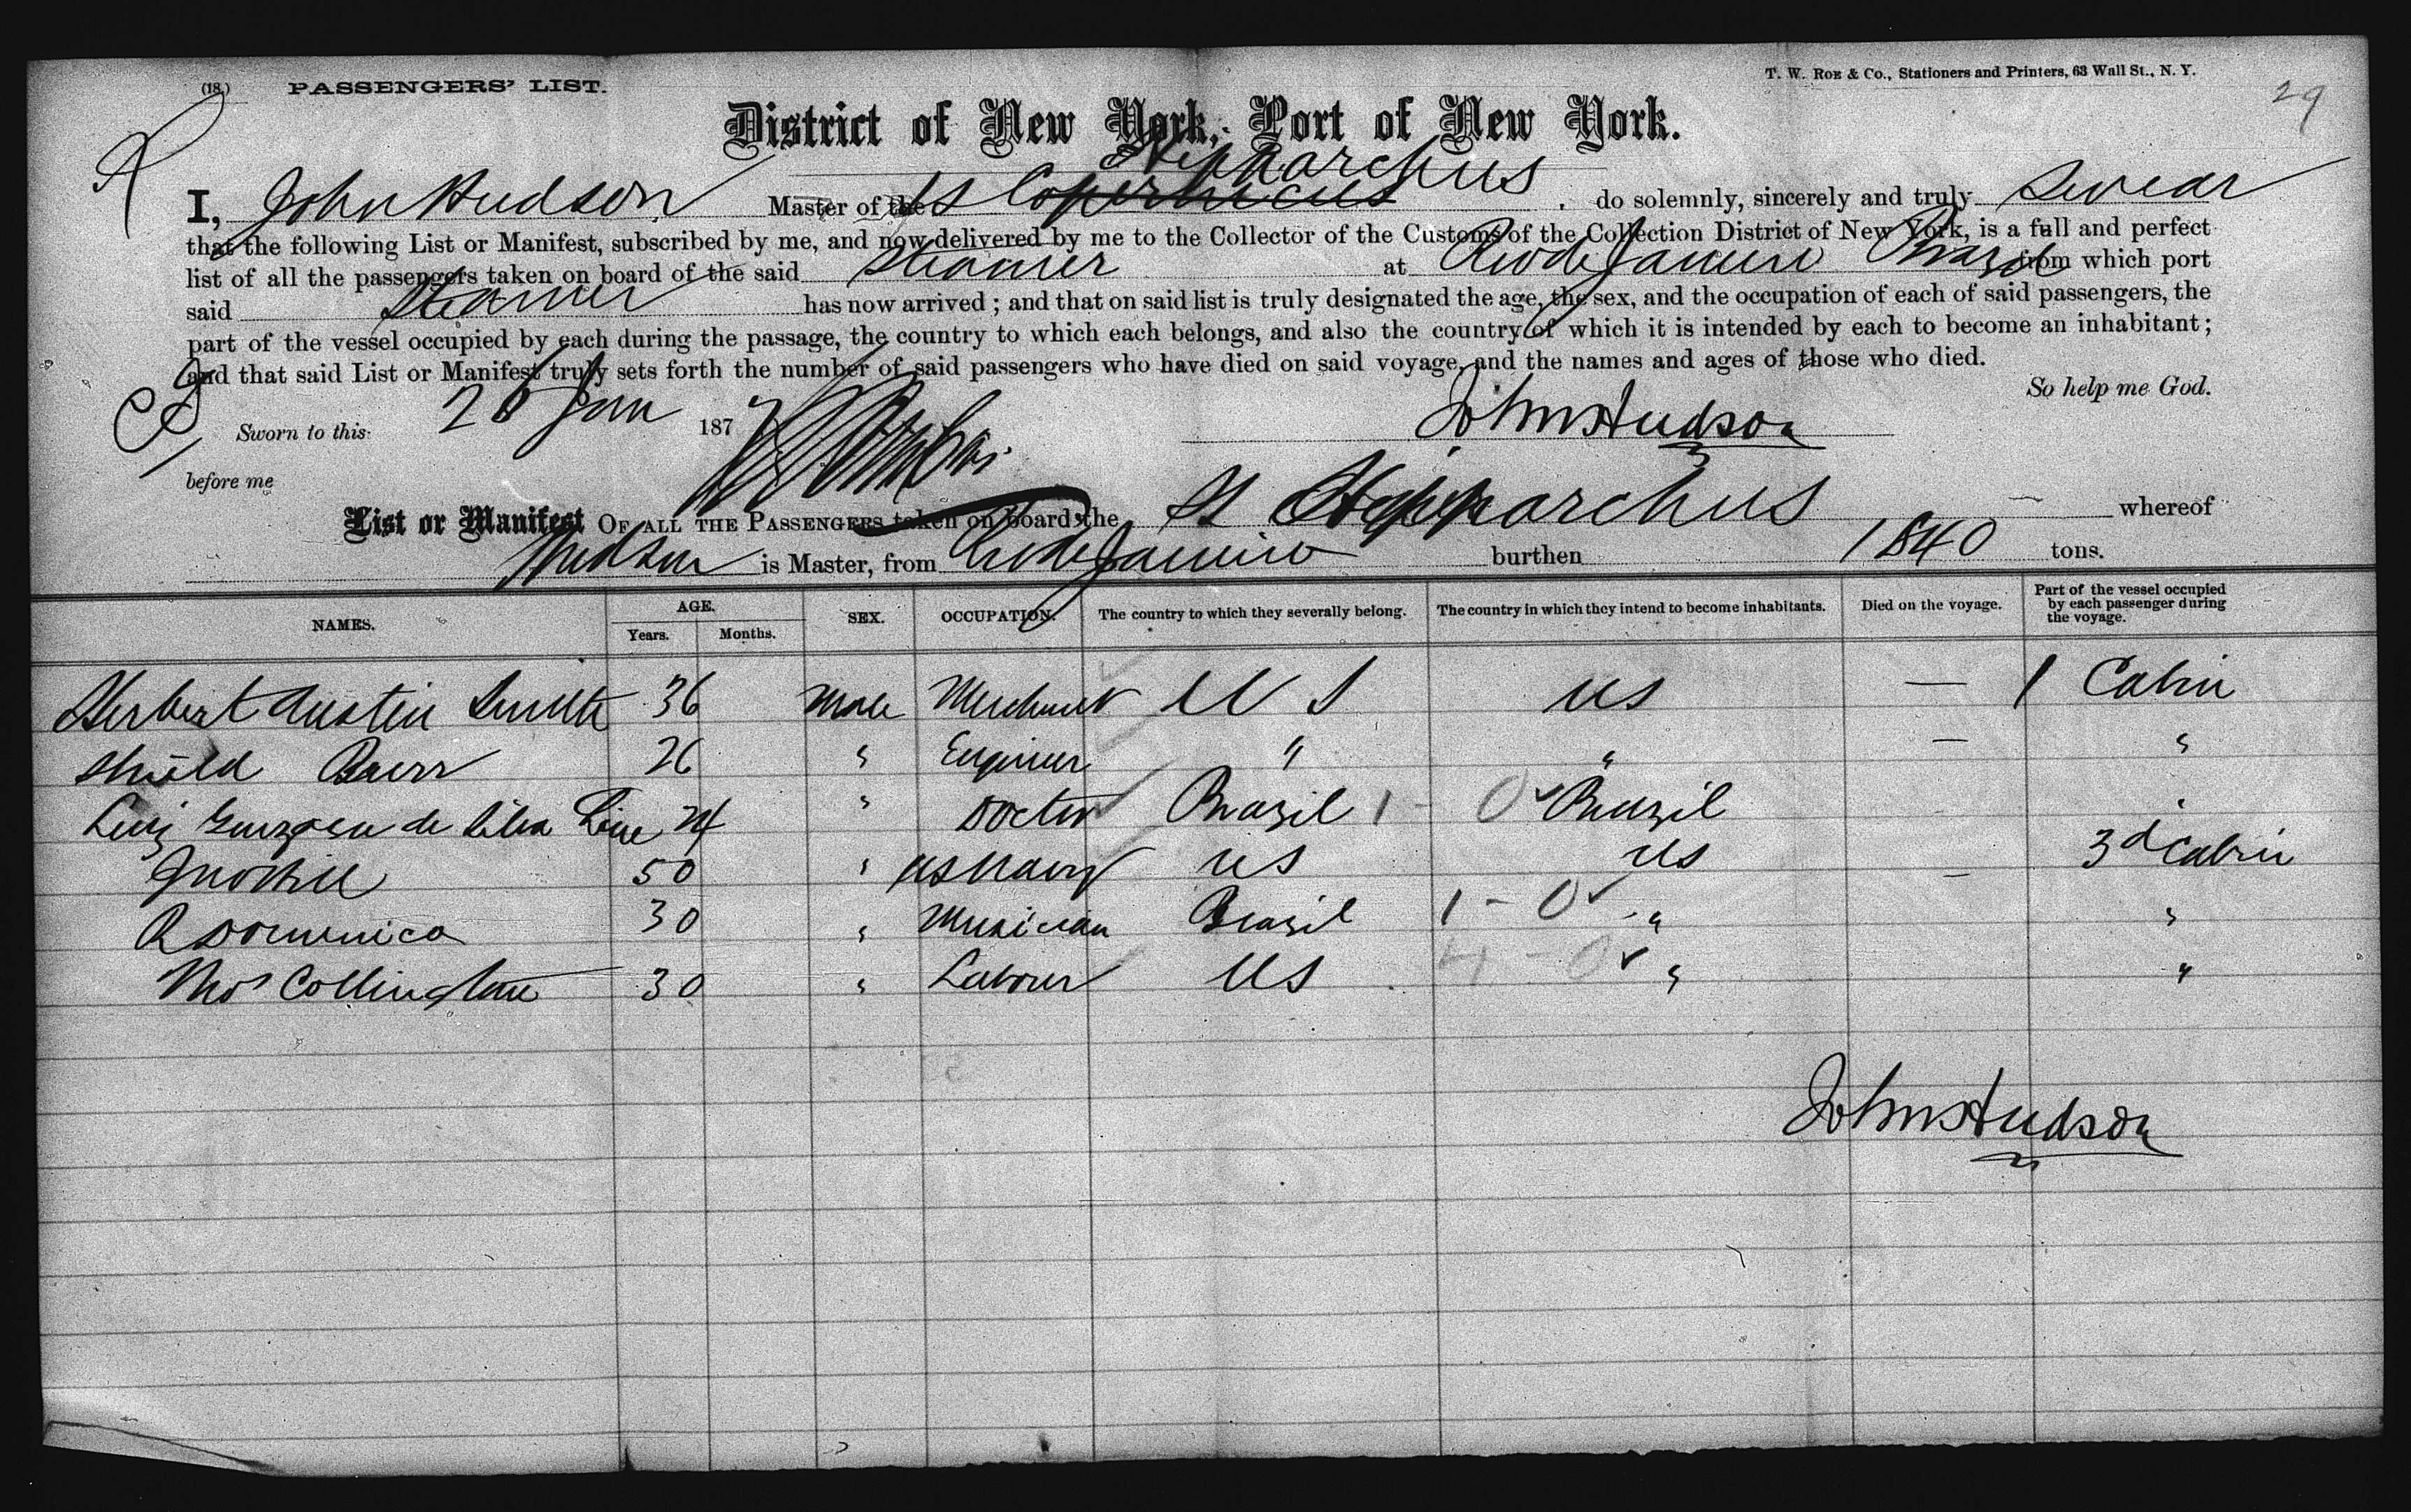 (18.) PASSENGERS' LIST. T. W. Roe & Co., Stationers and Printers, 63 Wall St., N. Y.
29
District of New York, Port of New York.
Hipparchus
I, John Hudson Master of the SS Copernicus , do solemnly, sincerely and truly swear
that the following List or Manifest, subscribed by me, and now delivered by me to the Collector of the Customs of the Collection District of New York, is a full and perfect
list of all the passengers taken on board of the said Steamer at Rio de Janeiro Brazil from which port
said Steamer has now arrived ; and that on said list is truly designated the age, the sex, and the occupation of each of said passengers, the
part of the vessel occupied by each during the passage, the country to which each belongs, and also the country of which it is intended by each to become an inhabitant ;
and that said List or Manifest truly sets forth the number of said passengers who have died on said voyage, and the names and ages of those who died.
So help me God.
Sworn to this 26 Jan 187 John Hudson
before me
List or Manifest OF ALL THE PASSENGERS taken on board the SS Hipparchus whereof
Hudson is Master, from Rio de Janeiro burthen 1840 tons.
NAMES. AGE. Years. Months. SEX. OCCUPATION. The country to which they severally belong. The country in which they intend to become inhabitants. Died on the voyage. Part of the vessel occupied by each passenger during the voyage.
Herbert Austin Smith 36 Male Merchant U S US — 1 Cabin
Shield 26 " Engineer " " — "
Luiz de Silva 24 " Doctor Brasil 1 - 0 Brazil "
Jno Hill 50 " US Navy US US — 3d Cabin
R Domenico 30 " Musician Brasil 1 - 0 " "
Thos Collington 30 " Labourer US 4 - 0 " "
John Hudson